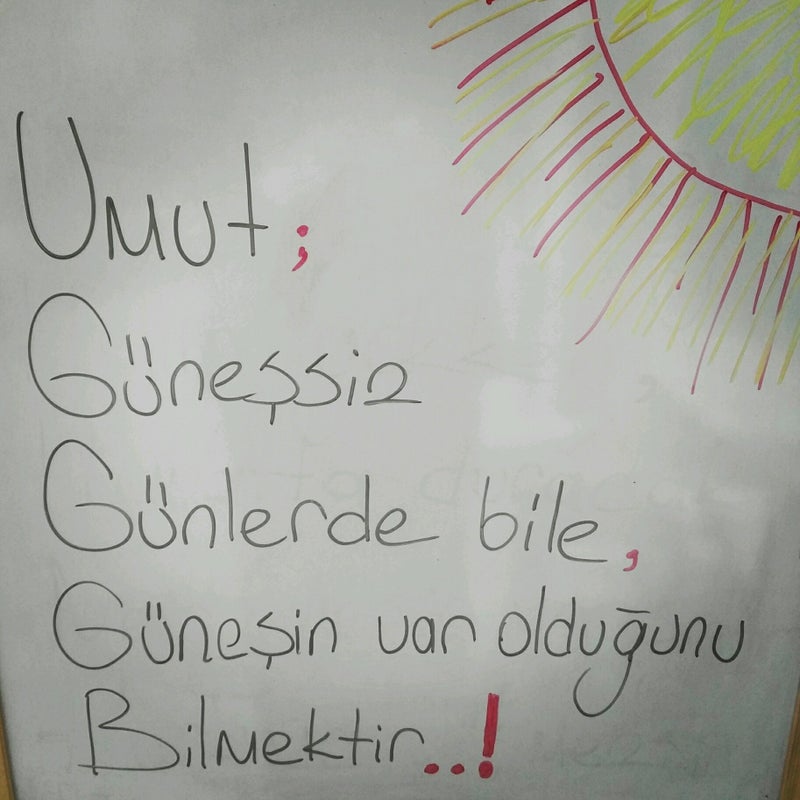 Umut;
Güneşsiz
Günlerde bile,
Güneşin var olduğunu
Bilmektir..!